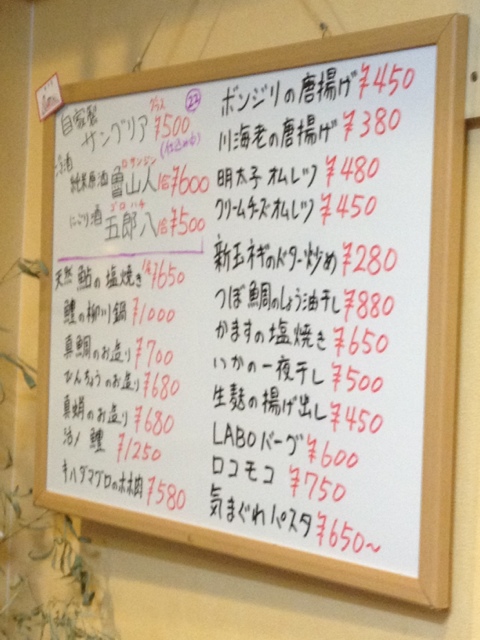 自家製
サンプリア グラス ¥500
純米原酒 魯山人 ロサンジン 1合 ¥600
にごり酒 五郎八 ゴロハチ 1合 ¥500
天然鮎の塩焼き ¥650
鱧の柳川鍋 ¥1000
真鯛のお造り ¥700
びんちょうのお造り ¥680
真蛸のお造り ¥680
活〆鱧 ¥1250
キハダマグロのホホ肉 ¥580
ボンジリの唐揚げ ¥450
川海老の唐揚げ ¥380
明太子オムレツ ¥480
クリームチーズオムレツ ¥450
新玉ネギのバター炒め ¥280
つぼ鯛のしょう油干し ¥880
かますの塩焼き ¥650
いかの一夜干し ¥500
生麩の揚げ出し ¥450
LABOバーグ ¥600
ロコモコ ¥750
気まぐれパスタ ¥650〜